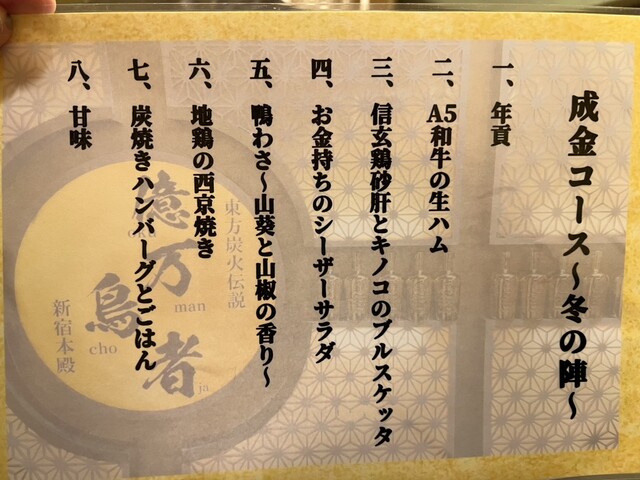 成金コース～冬の陣～
一、年貢
二、A5和牛の生ハム
三、信玄鶏砂肝とキノコのブルスケッタ
四、お金持ちのシーザーサラダ
五、鴨わさ～山葵と山椒の香り～
六、地鶏の西京焼き
七、炭焼きハンバーグとごはん
八、甘味
東方炭火伝説
億万鳥者
oku
man
cho
ja
新宿本殿